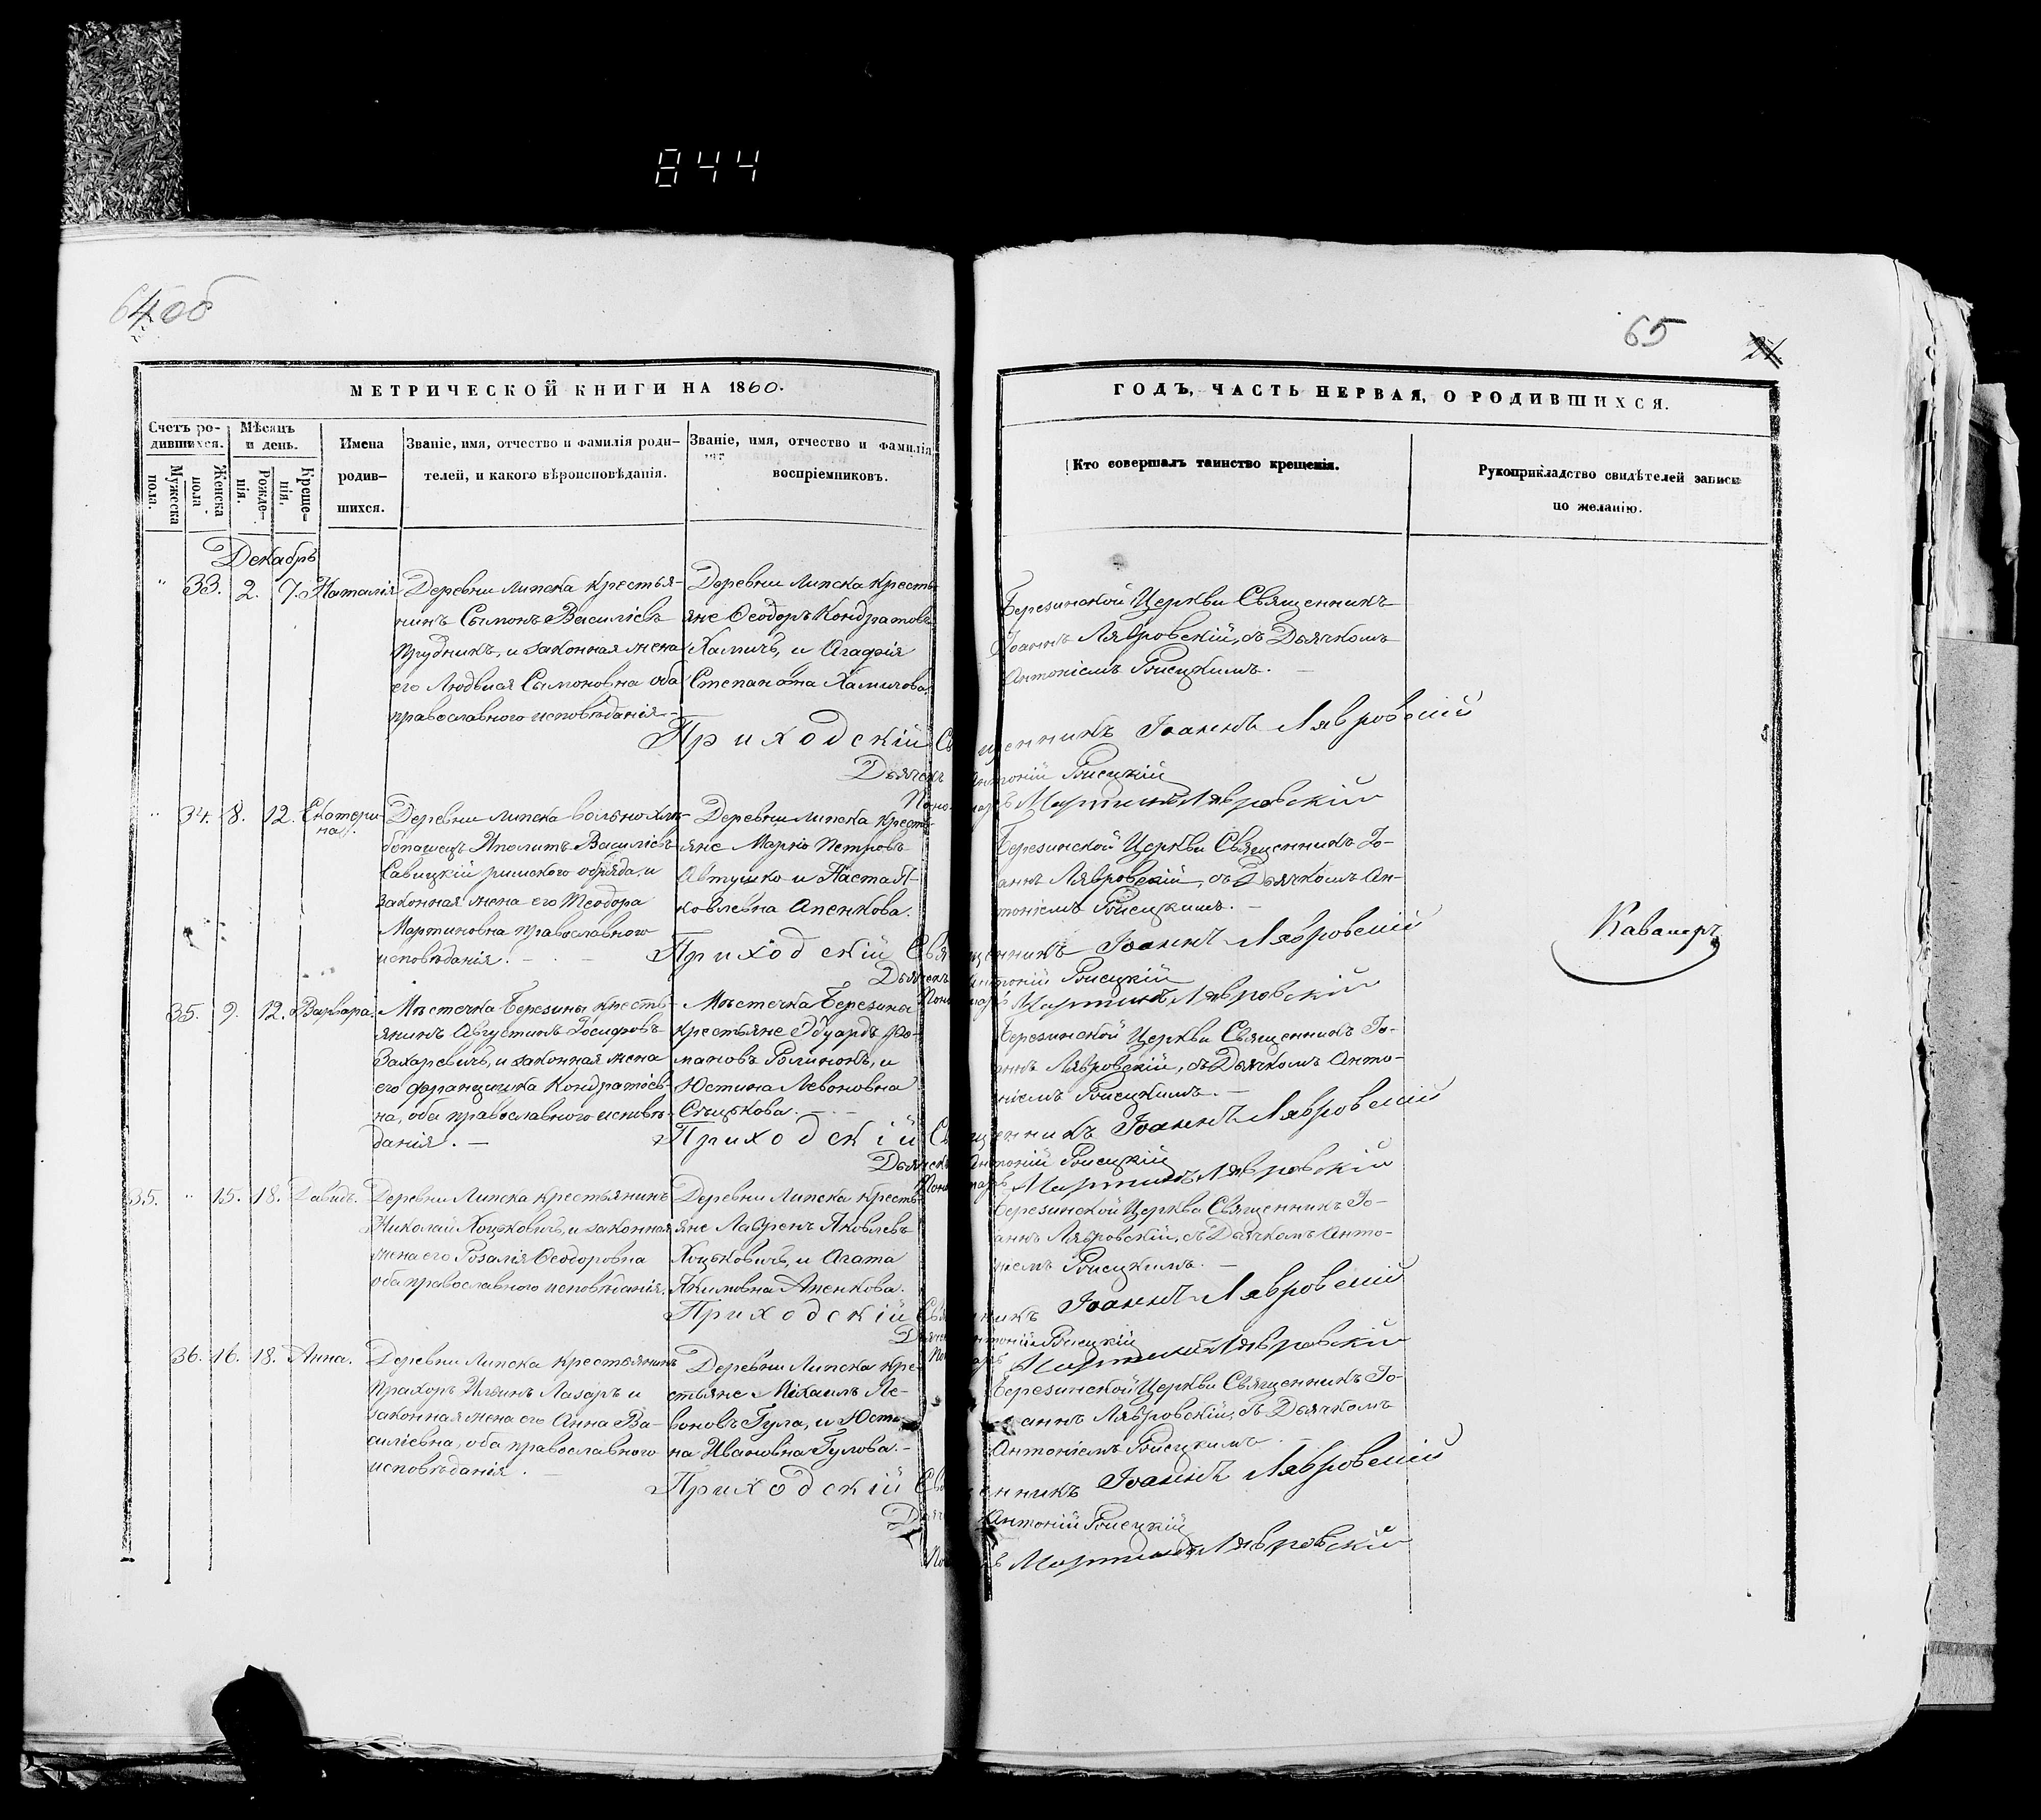 844
64об
65
21
МЕТРИЧЕСКОЙ КНИГИ НА 1860.
ГОДЪ, ЧАСТЬ ПЕРВАЯ, О РОДИВШИХСЯ.
Счетъ ро-
дившихся.
Мужеска
пола.
Женска
пола.
Мѣсяцъ
и день.
Рожде-
нія.
Креще-
нія.
Имена
родив-
шихся.
Званіе, имя, отчество и фамилія роди-
телей, и какого вѣроисповѣданія.
Званіе, имя, отчество и фамилія
воспріемниковъ.
Кто совершалъ таинство крещенія.
Рукоприкладство свидѣтелей записи
по желанію.
Декабрь
" 33. 2. 7. Наталія
Деревни Липска крестья-
нинъ Сымонъ Василіевъ
Прудникъ, и законная жена
его Людвися Сымоновна оба
православного исповѣданія.
Деревни Липска кресть-
яне Ѳеодоръ Кондратовъ
Хамичъ, и Агафія
Степановна Хамичова.
Березинской Церкви Священникъ
Іоаннъ Лявровскій, съ Дьячкомъ
Антоніемъ Рисецкимъ.
Приходскій Священникъ Іоаннъ Лявровскій
Дьячекъ Антоній Рисецкій
Пономарь Мартинъ Лявровскій
" 34. 8. 12. Екатери-
на.
Деревни Липска вольно хлѣ-
бопашецъ Иполитъ Василіевъ
Савицкій римского обряда, и
законная жена его Теодора
Мартиновна православного
исповѣданія.
Деревни Липска кресть-
яне Марко Петровъ
Автушко и Наста Я-
ковлевна Апенкова.
Березинской Церкви Священникъ Іо-
аннъ Лявровскій, съ Дьячкомъ Ан-
тоніемъ Рисецкимъ.
Приходскій Священникъ Іоаннъ Лявровскій
Дьячекъ Антоній Рисецкій
Пономарь Мартинъ Лявровскій
Кавалеръ
35. 9. 12. Варвара.
Мѣстечка Березины кресть-
янинъ Августинъ Іосифовъ
Захаревичъ, и законная жена
его Францишка Кондратіев-
на, оба православного исповѣ-
данія.
Мѣстечка Березины
крестьяне Эдуардъ Ро-
мановъ Ролинокъ, и
Юстина Левоновна
Сѣцькова.
Березинской Церкви Священникъ Іо-
аннъ Лявровскій, съ Дьячкомъ Анто-
ніемъ Рисецкимъ.
Приходскій Священникъ Іоаннъ Лявровскій
Дьячекъ Антоній Рисецкій
Пономарь Мартинъ Лявровскій
35. " 15. 18. Давидъ.
Деревни Липска крестьянинъ
Николай Хоцьковичъ, и законная
жена его Розалія Ѳеодоровна
оба православного исповѣданія.
Деревни Липска кресть-
яне Лаврен Яковлевъ
Хоцьковичъ, и Агата
Якимовна Апенкова.
Березинской Церкви Священникъ Іо-
аннъ Лявровскій, съ Дьячкомъ Анто-
ніемъ Рисецкимъ.
Приходскій Священникъ Іоаннъ Лявровскій
Дьячекъ Антоній Рисецкій
Пономарь Мартинъ Лявровскій
36. 16. 18. Анна.
Деревни Липска крестьянинъ
Прахоръ Ильинъ Лазаръ и
законная жена его Анна Ва-
силіевна, оба православного
исповѣданія.
Деревни Липска кре-
стьяне Михаилъ Ле-
воновъ Гула, и Юсти-
на Ивановна Гулова.
Березинской Церкви Священникъ Іо-
аннъ Лявровскій, съ Дьячкомъ
Антоніемъ Рисецкимъ
Приходскій Священникъ Іоаннъ Лявровскій
Дьячекъ Антоній Рисецкій
Пономарь Мартинъ Лявровскій